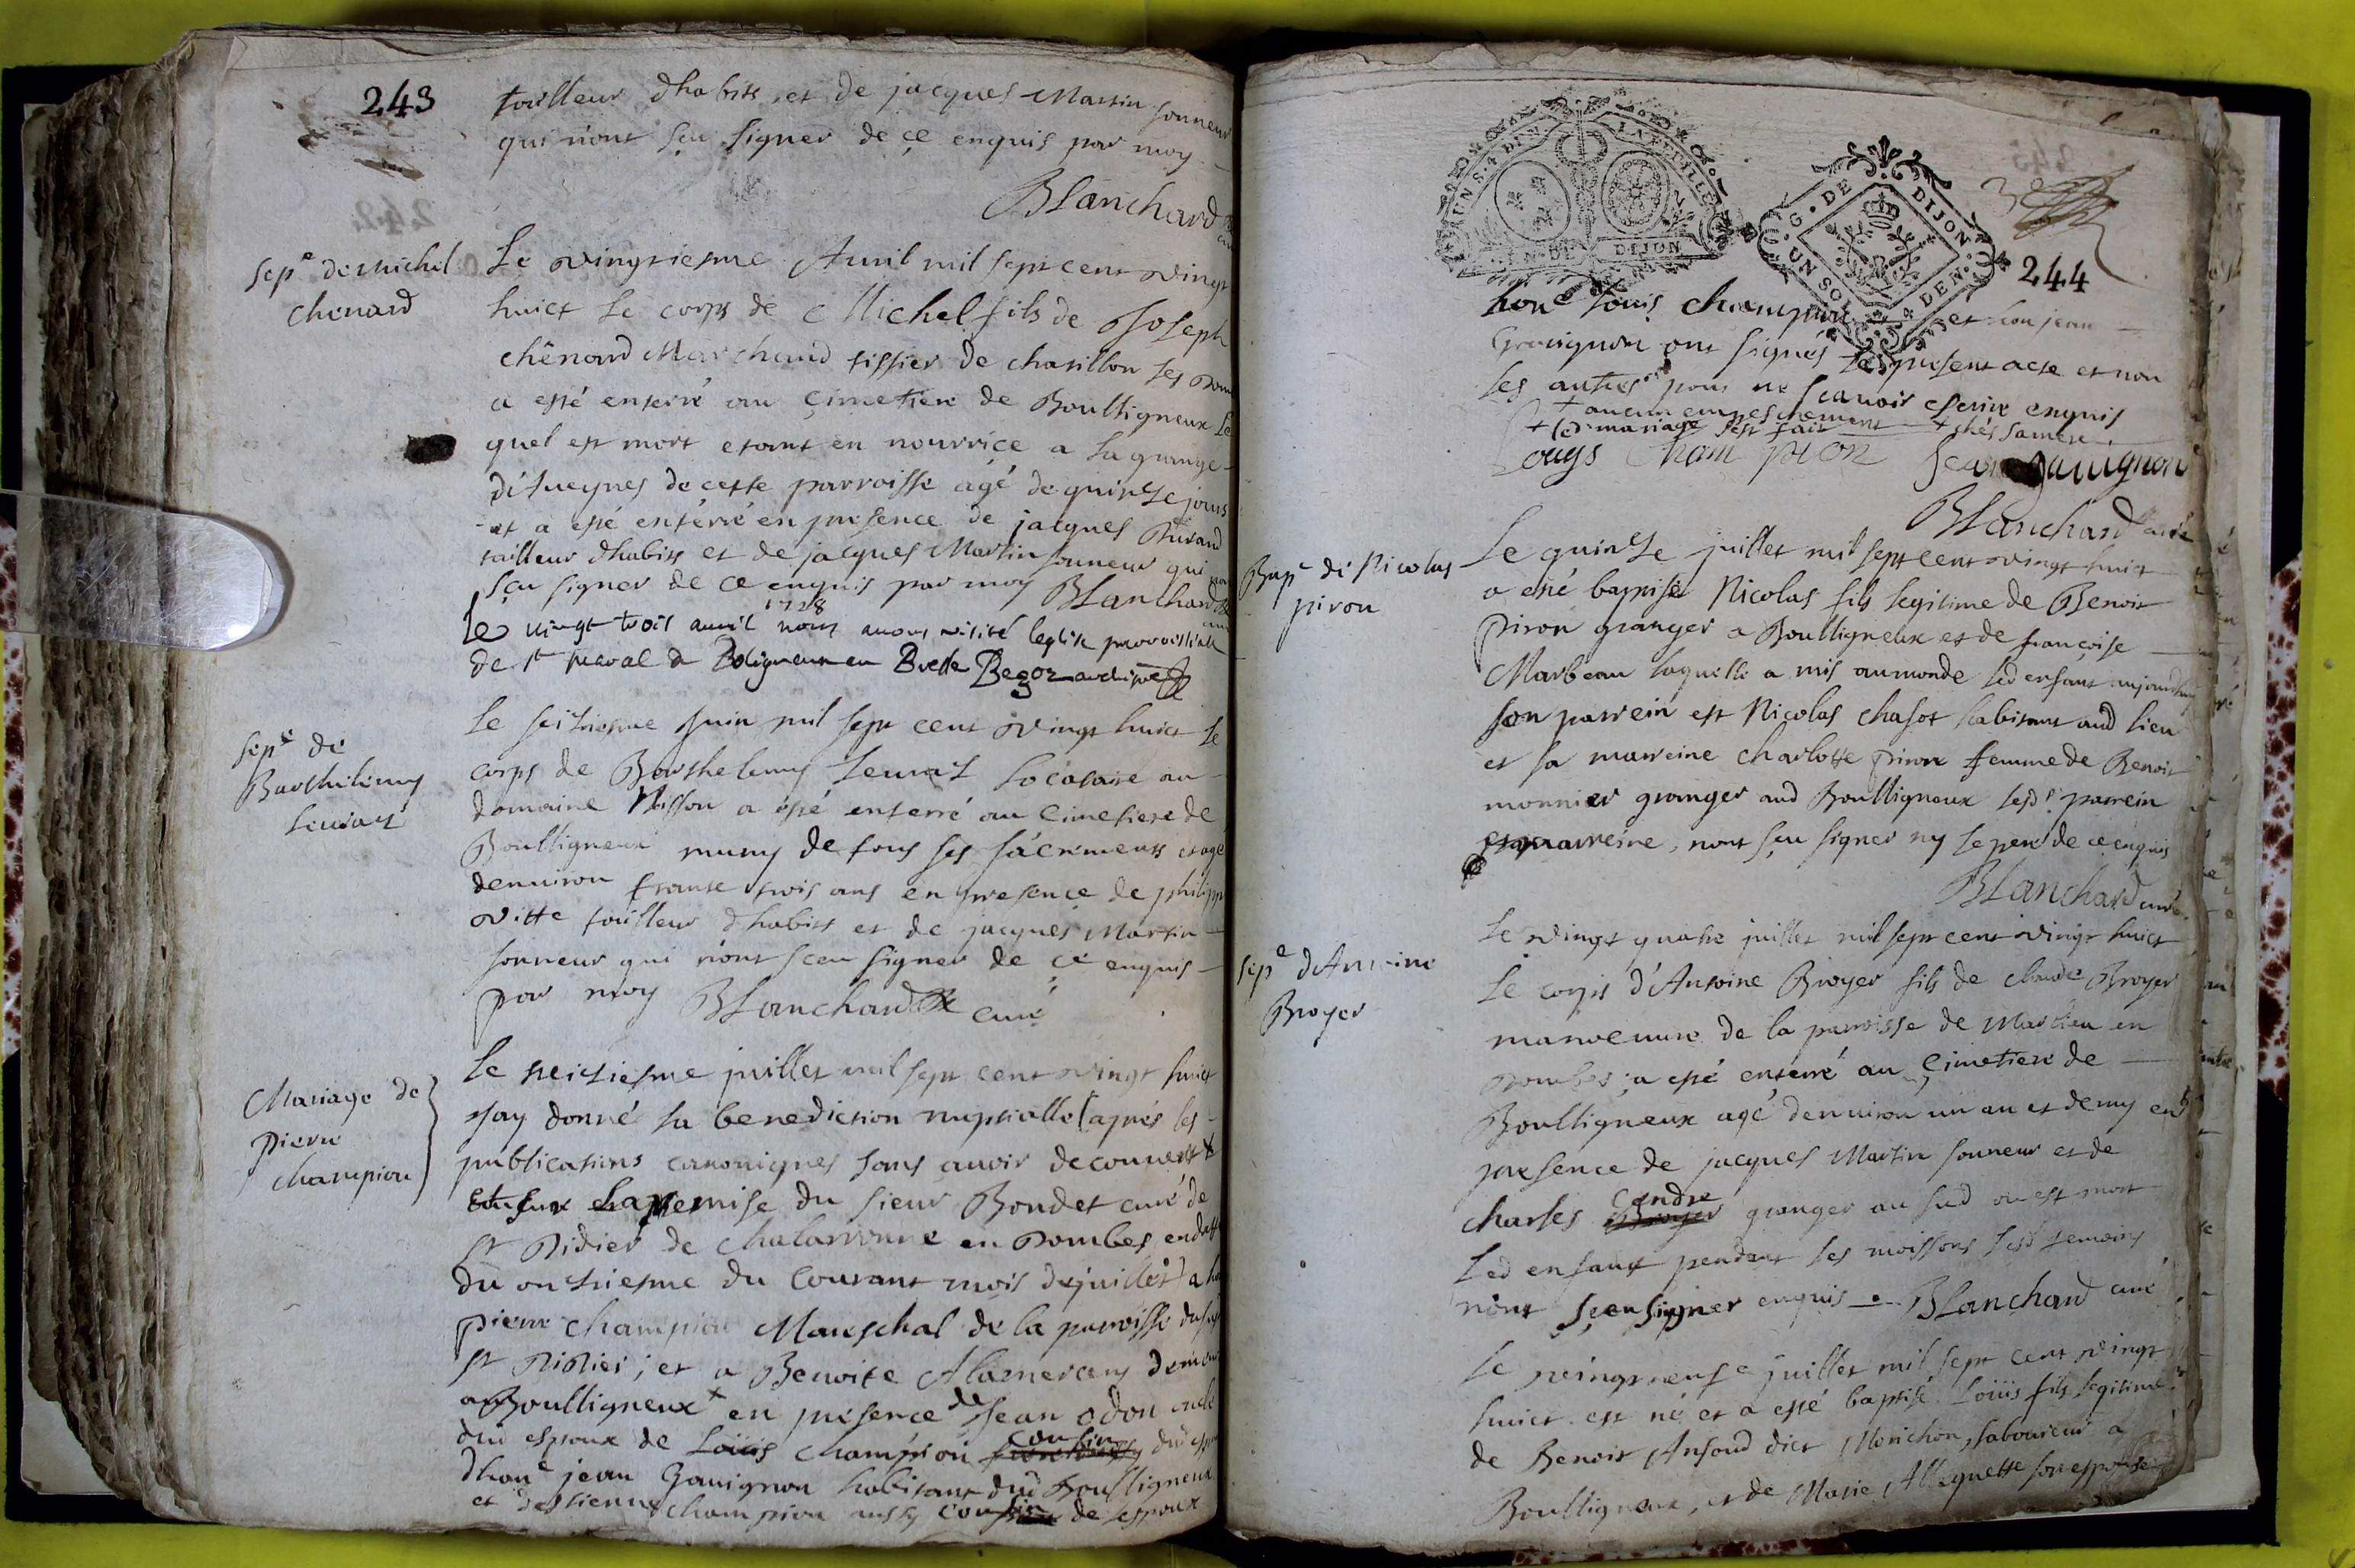 243
tailleur dhabits et de jacques Martin sonneur
qui n'ont sçu signer de ce enquis par moy
Blanchard
Sep^e de michel
chenard
Le vingtiesme Auril mil sept cent vingt
huict le corps de Michel fils de Joseph
chênard Marchand tissier de chatillon les Dom
a esté enterré au cimetiere de Boulligneux le
quel est mort etant en nourrice a la grange
de cette parroisse agé de quinze jours
et a esté enterré en presence de jacques Durand
tailleur dhabits et de jacques Martin sonneur qui
sçu signer de ce enquis par moy Blanchard
1728
Le vingt trois auril nous auons visité leglise parroissialle
de en Bresse
Sep^e de
Barthelemy
Leurat
Le seiziesme Juin mil sept cent vingt huict le
corps de Barthelemy Leurat locataire au
domaine a esté enterré au cimetiere de
Boulligneux muny de tous ses sacrements et agé
denuiron trante trois ans en presence de philippe
vitte tailleur dhabits et de jacques Martin
sonneur qui n'ont sceu signer de ce enquis
par moy Blanchard curé
Mariage de
pierre
champion
Le seiziesme juillet mil sept cent vingt huict
Jay donné la benediction nuptialle (aprés les
publications canoniques sans auoir decouuert +
et sur la remise du sieur Bondet curé de
S^t Didier de chalaronne en Dombes en datte
du onziesme du courant mois de juillet) a
pierre champion Mareschal de la parroisse dud
S^t Didier; et a Benoite
a Boulligneux + en presence de Jean odon oncle
dud espoux de Loüis champion cousin dud
dhon^e jean Gauignon habitant dud Boulligneux
et destienne champion aussy cousin de lespoux
UN S. 4 DEN. LA FEUILLE
GEN. DE DIJON
G. DE DIJON
UN SOL 4 DEN.
244
hon^e Louis champion et hon jean
Grauignon ont signés le present acte et non
les autres pour ne scauoir escrire enquis
+ aucun empeschement
+ led mariage sest fait + chés samere
Louys Cham pion Jean gauignon
Blanchard curé
Bap^e de Nicolas
piron
Le quinze juillet mil sept cent vingt huict
a esté baptisé Nicolas fils legitime de Benoit
piron granger a Boulligneux et de françoise
Marbeau laquelle a mis aumonde led enfant aujourdhuy
son parrein est Nicolas chasot habitant aud lieu
et sa marreine charlotte piron femme de Benoit
monnier granger aud Boulligneux lesd^s parrein
et marreine, nont sçu signer ny le pere de ce enquis
Blanchard curé
Sep^e dAntoine
Broyer
Le vingt quatre juillet mil sept cent vingt huict
le corps d'Antoine Broyer fils de claude Broyer
manoeuure de la parroisse de Marlieu en
Dombes a esté enterré au cimetiere de
Boulligneux agé denuiron un an et demy en
presence de jacques Martin sonneur et de
charles Condre granger au sud ou est mort
led enfant pendant les moissons lesd temoins
n'ont sçeu signer enquis Blanchard curé
Le vingt neuf^e juillet mil sept cent vingt
huict est né et a esté baptisé Loüis fils legitime
de Benoit Ansoud dict Morichon, laboureur a
Boulligneux, et de Marie Allequette son espouse